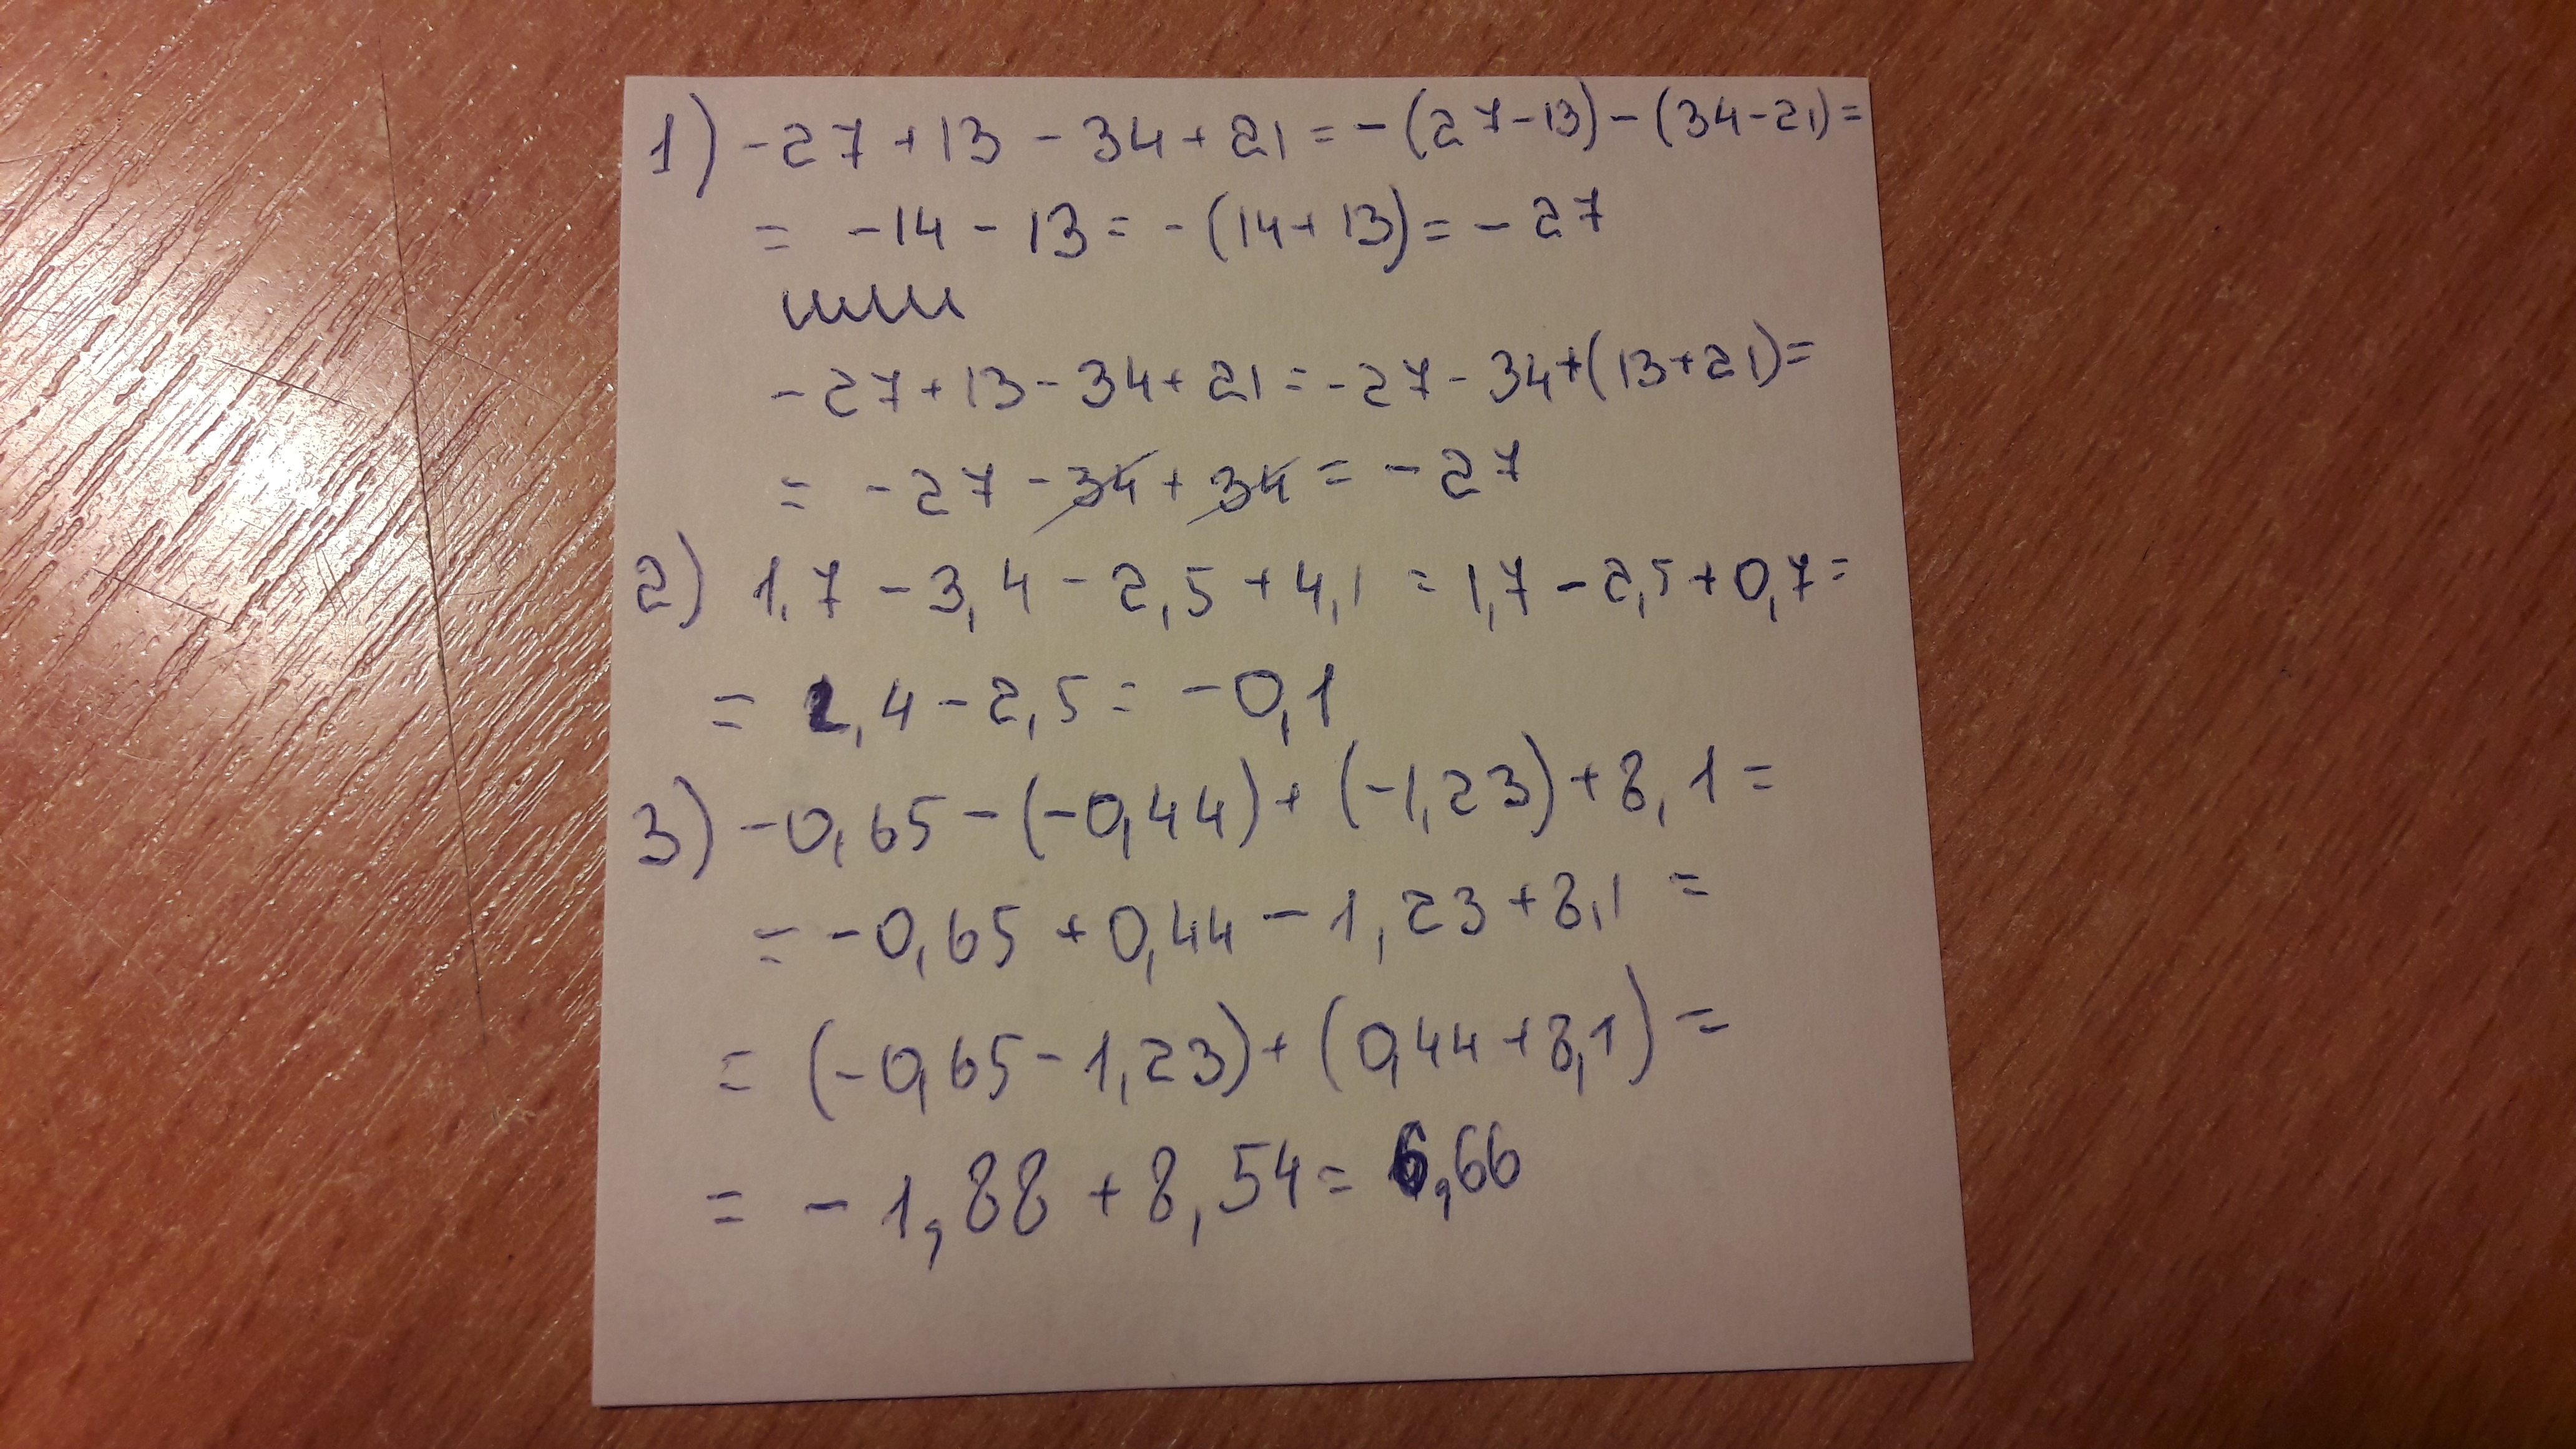 1) -27 + 13 - 34 + 21 = -(27-13) - (34-21) =
= -14 - 13 = -(14+13) = -27
или
-27+13-34+21 = -27-34+(13+21) =
= -27 - 34 + 34 = -27
2) 1,7 - 3,4 - 2,5 + 4,1 = 1,7 - 2,5 + 0,7 =
= 2,4 - 2,5 = -0,1
3) -0,65 - (-0,44) + (-1,23) + 8,1 =
= -0,65 + 0,44 - 1,23 + 8,1 =
= (-0,65 - 1,23) + (0,44 + 8,1) =
= -1,88 + 8,54 = 6,66